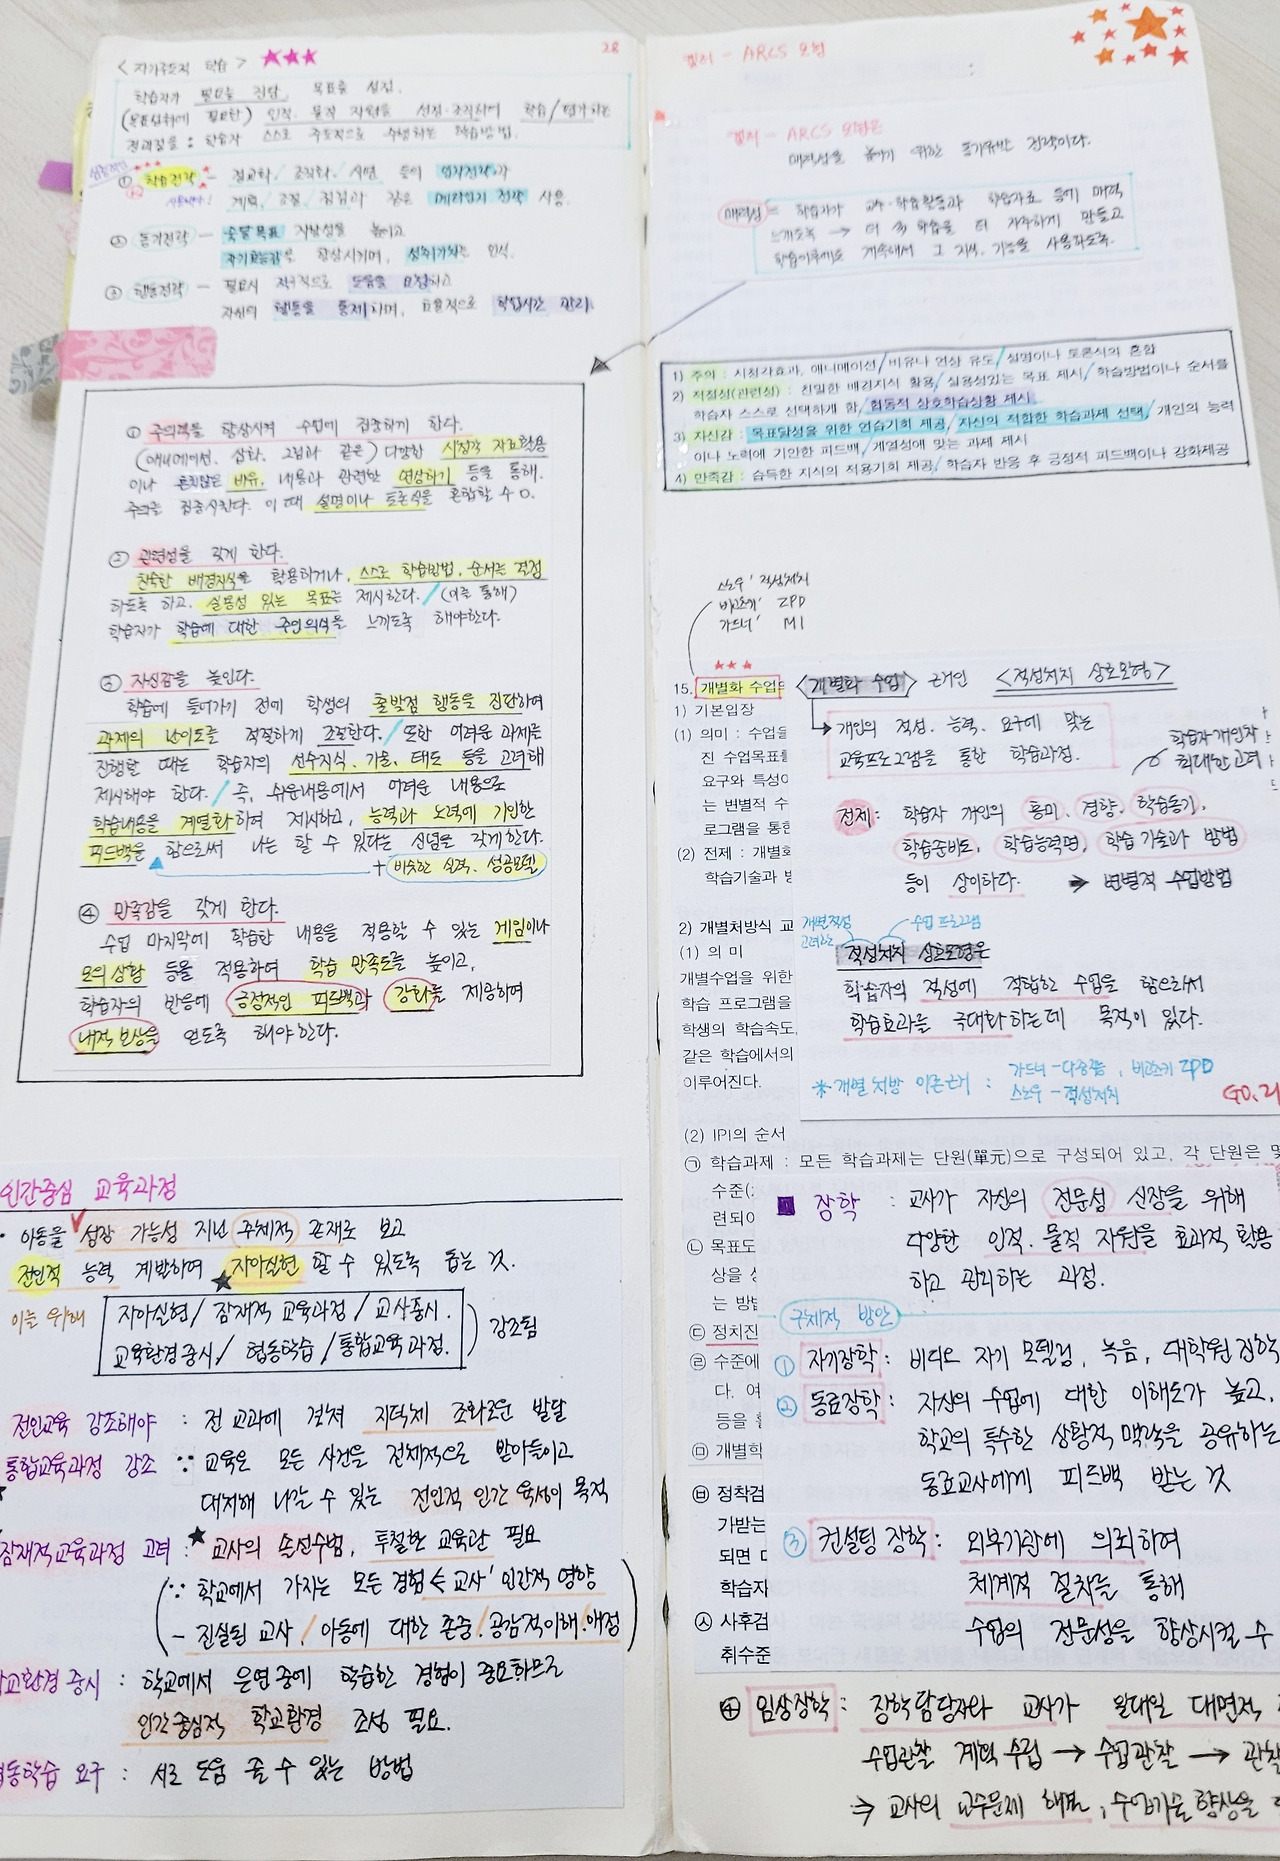 28
< 자기주도적 학습 >
학습자가 필요를 진단, 목표를 설정,
(목표성취에 필요한) 인적·물적 자원을 선정·조직하여 학습/평가하는
전과정을 : 학습자 스스로 주도적으로 수행하는 학습방법.
① 학습전략 - 정교화/조직화/시연 등의 인지전략과
계획/조절/점검과 같은 메타인지 전략 사용.
② 동기전략 - 숙달목표 지향성을 높이고
자기효능감을 향상시키며, 성취가치를 인식.
③ 행동전략 - 필요시 적극적으로 도움을 요청하고
자신의 행동을 통제하며, 효율적으로 학습시간 관리.
① 주의력을 향상시켜 수업에 집중하게 한다.
(애니메이션, 삽화, 그림과 같은) 다양한 시청각 자료활용
이나 흔치않은 비유, 내용과 관련한 연상하기 등을 통해.
주의를 집중시킨다. 이 때 설명이나 토론식을 혼합할 수 O.
② 관련성을 갖게 한다.
친숙한 배경지식을 활용하거나, 스스로 학습방법, 순서를 결정
하도록 하고, 실용성 있는 목표를 제시한다. / (이를 통해)
학습자가 학습에 대한 주인의식을 느끼도록 해야한다.
③ 자신감을 높인다.
학습에 들어가기 전에 학생의 출발점 행동을 진단하여
과제의 난이도를 적절하게 조절한다. / 또한 어려운 과제를
진행할 때는 학습자의 선수지식, 기술, 태도 등을 고려해
제시해야 한다. / 즉, 쉬운내용에서 어려운 내용으로
학습내용을 계열화하여 제시하고, 능력과 노력에 기인한
피드백을 함으로써 나는 할 수 있다는 신념을 갖게한다.
+ 비슷한 실력, 성공모델
④ 만족감을 갖게 한다.
수업 마지막에 학습한 내용을 적용할 수 있는 게임이나
모의상황 등을 적용하여 학습 만족도를 높이고,
학습자의 반응에 긍정적인 피드백과 강화를 제공하여
내적 보상을 얻도록 해야한다.
인간중심 교육과정
· 아동을 성장 가능성 지닌 주체적 존재로 보고
전인적 능력 계발하여 자아실현 할 수 있도록 돕는 것.
이를 위해
자아실현/ 잠재적 교육과정 / 교사중시.
교육환경중시/ 협동학습 /통합교육과정.
강조됨
전인교육 강조해야 : 전 교과에 걸쳐 지덕체 조화로운 발달
통합교육과정 강조 ∵ 교육은 모든 사건을 전체적으로 받아들이고
대처해 나갈 수 있는 전인적 인간 육성이 목적
잠재적교육과정 고려 : ★ 교사의 솔선수범, 투철한 교육관 필요
(∵ 학교에서 가지는 모든 경험 < 교사' 인간적 영향
- 진실된 교사 / 아동에 대한 존중 / 공감적이해. 애정)
교환경 중시 : 학교에서 은연중에 학습한 경험이 중요하므로
인간중심적 학교환경 조성 필요.
동학습 요구 : 서로 도움 줄 수 있는 방법
켈러 - ARCS 모형
켈러 - ARCS 모형은
매력성을 높이기 위한 동기유발 전략이다.
매력성 = 학습자가 교수·학습활동과 학습자료 등에 매력
느끼도록 → 더 학습을 더 자주하게 만들고
학습이후에도 계속해서 그 지식, 기능을 사용하도록.
1) 주의 : 시청각효과, 애니메이션/ 비유나 연상 유도/ 설명이나 토론식의 혼합
2) 적절성(관련성) : 친밀한 배경지식 활용/ 실용성있는 목표 제시/ 학습방법이나 순서를
학습자 스스로 선택하게 함/ 협동적 상호학습상황 제시
3) 자신감 : 목표달성을 위한 연습기회 제공/ 자신의 적합한 학습과제 선택/ 개인의 능력
이나 노력에 기인한 피드백/ 계열성에 맞는 과제 제시
4) 만족감 : 습득한 지식의 적용기회 제공/ 학습자 반응 후 긍정적 피드백이나 강화제공
스노우' 적성처치
비고츠키' ZPD
가드너' MI
15. 개별화 수업
1) 기본입장
(1) 의미 : 수업을
진 수업목표를
요구와 특성
는 변별적 수
로그램을 통한
(2) 전제 : 개별화
학습기술과
2) 개별처방식 교
(1) 의 미
개별수업을 위한
학습 프로그램을
학생의 학습속도,
같은 학습에서의
이루어진다.
<개별화 수업> 근거인 <적성처치 상호모형>
개인의 적성, 능력, 요구에 맞는
교육프로그램을 통한 학습과정.
학습자개인차
최대한 고려
전제: 학습자 개인의 흥미, 경향, 학습동기,
학습준비도, 학습능력면, 학습 기술과 방법
등이 상이하다. ⇒ 변별적 수업방법
개별적성
고려하는
수업 프로그램
적성처치 상호모형은
학습자의 적성에 적합한 수업을 함으로써
학습효과를 극대화하는데 목적이 있다.
* 개별 처방 이론근거 : 가드너 - 다중지능, 비고츠키 ZPD
스노우 - 적성처치
GO.
(2) IPI의 순서
㉠ 학습과제 : 모든 학습과제는 단원(單元)으로 구성되어 있고, 각 단원은 몇
수준(
련되어
㉡ 목표도
상을
는 방법
㉢ 정치진
㉣ 수준에
다. 여
등을
㉤ 개별학
㉥ 정착검
가받는
되면
학습자
㉦ 사후검
취수준
■ 장학 : 교사가 자신의 전문성 신장을 위해
다양한 인적·물적 자원을 효과적 활용
하고 관리하는 과정.
구체적 방안
① 자기장학 : 비디오 자기 모델링, 녹음, 대학원 진학
② 동료장학 : 자신의 수업에 대한 이해도가 높고,
학교의 특수한 상황적 맥락을 공유하는
동료교사에게 피드백 받는 것
③ 컨설팅 장학 : 외부기관에 의뢰하여
체계적 절차를 통해
수업의 전문성을 향상시킬 수
④ 임상장학 : 장학담당자와 교사가 일대일 대면적,
수업관찰 계획 수립 → 수업관찰 → 관찰
⇒ 교사의 교수문제 해결, 수업기술 향상을